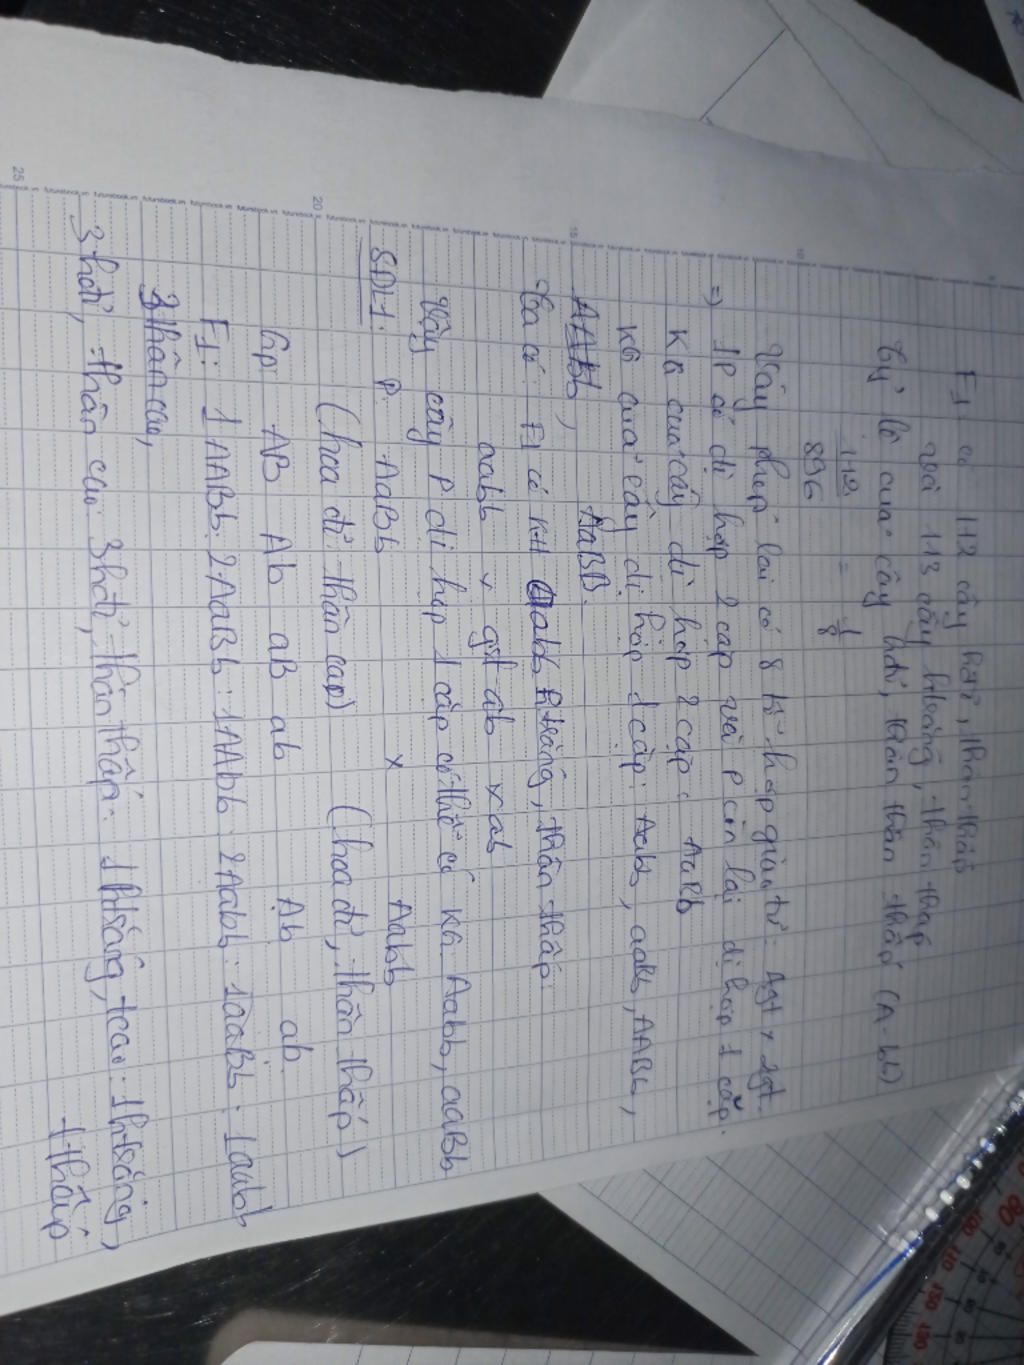 F1 có 112 cây hđỏ, thân thấp
và 113 cây htrắng, thân thấp
Tỷ lệ của cây hđỏ, thân thấp (A-bb)
112 / 896 = 1/8
Vậy phép lai có 8 tổ hợp giao tử = 4gt x 2gt.
=) 1P có dị hợp 2 cặp và P còn lại dị hợp 1 cặp.
KG của cây dị hợp 2 cặp: AaBb
KG của cây dị hợp 1 cặp: Aabb, aaBb, AABb,
AaBB.
Ta có: F1 có KH htrắng, thân thấp
aabb x gt ab x ab
Vậy cây P dị hợp 1 cặp có thể có KG: Aabb, aaBb
SĐL1: P: AaBb x Aabb
(hoa đỏ, thân cao) (hoa đỏ, thân thấp)
Gp: AB Ab aB ab Ab ab
F1: 1AABb: 2AaBb: 1AAbb: 2Aabb: 1aaBb: 1aabb
3hđỏ, thân cao: 3hđỏ, thân thấp: 1htrắng, tcao: 1htrắng,
t.thấp
20
25
15
10